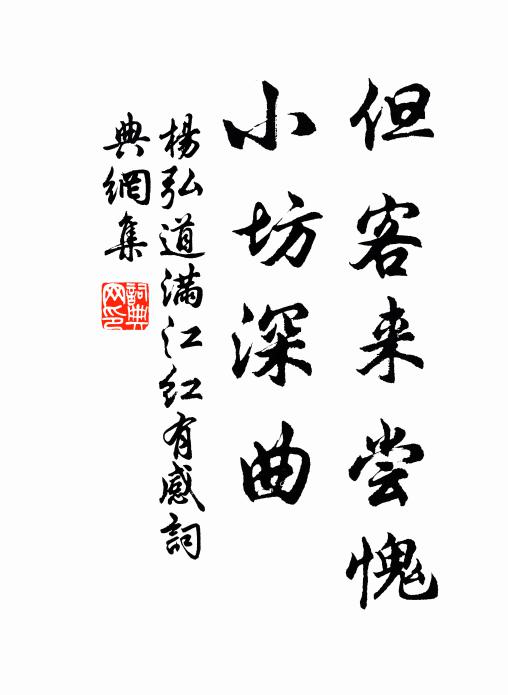 但客来尝愧
小坊深曲
楊弘道滿江红有感詞
典網集
詞典网印